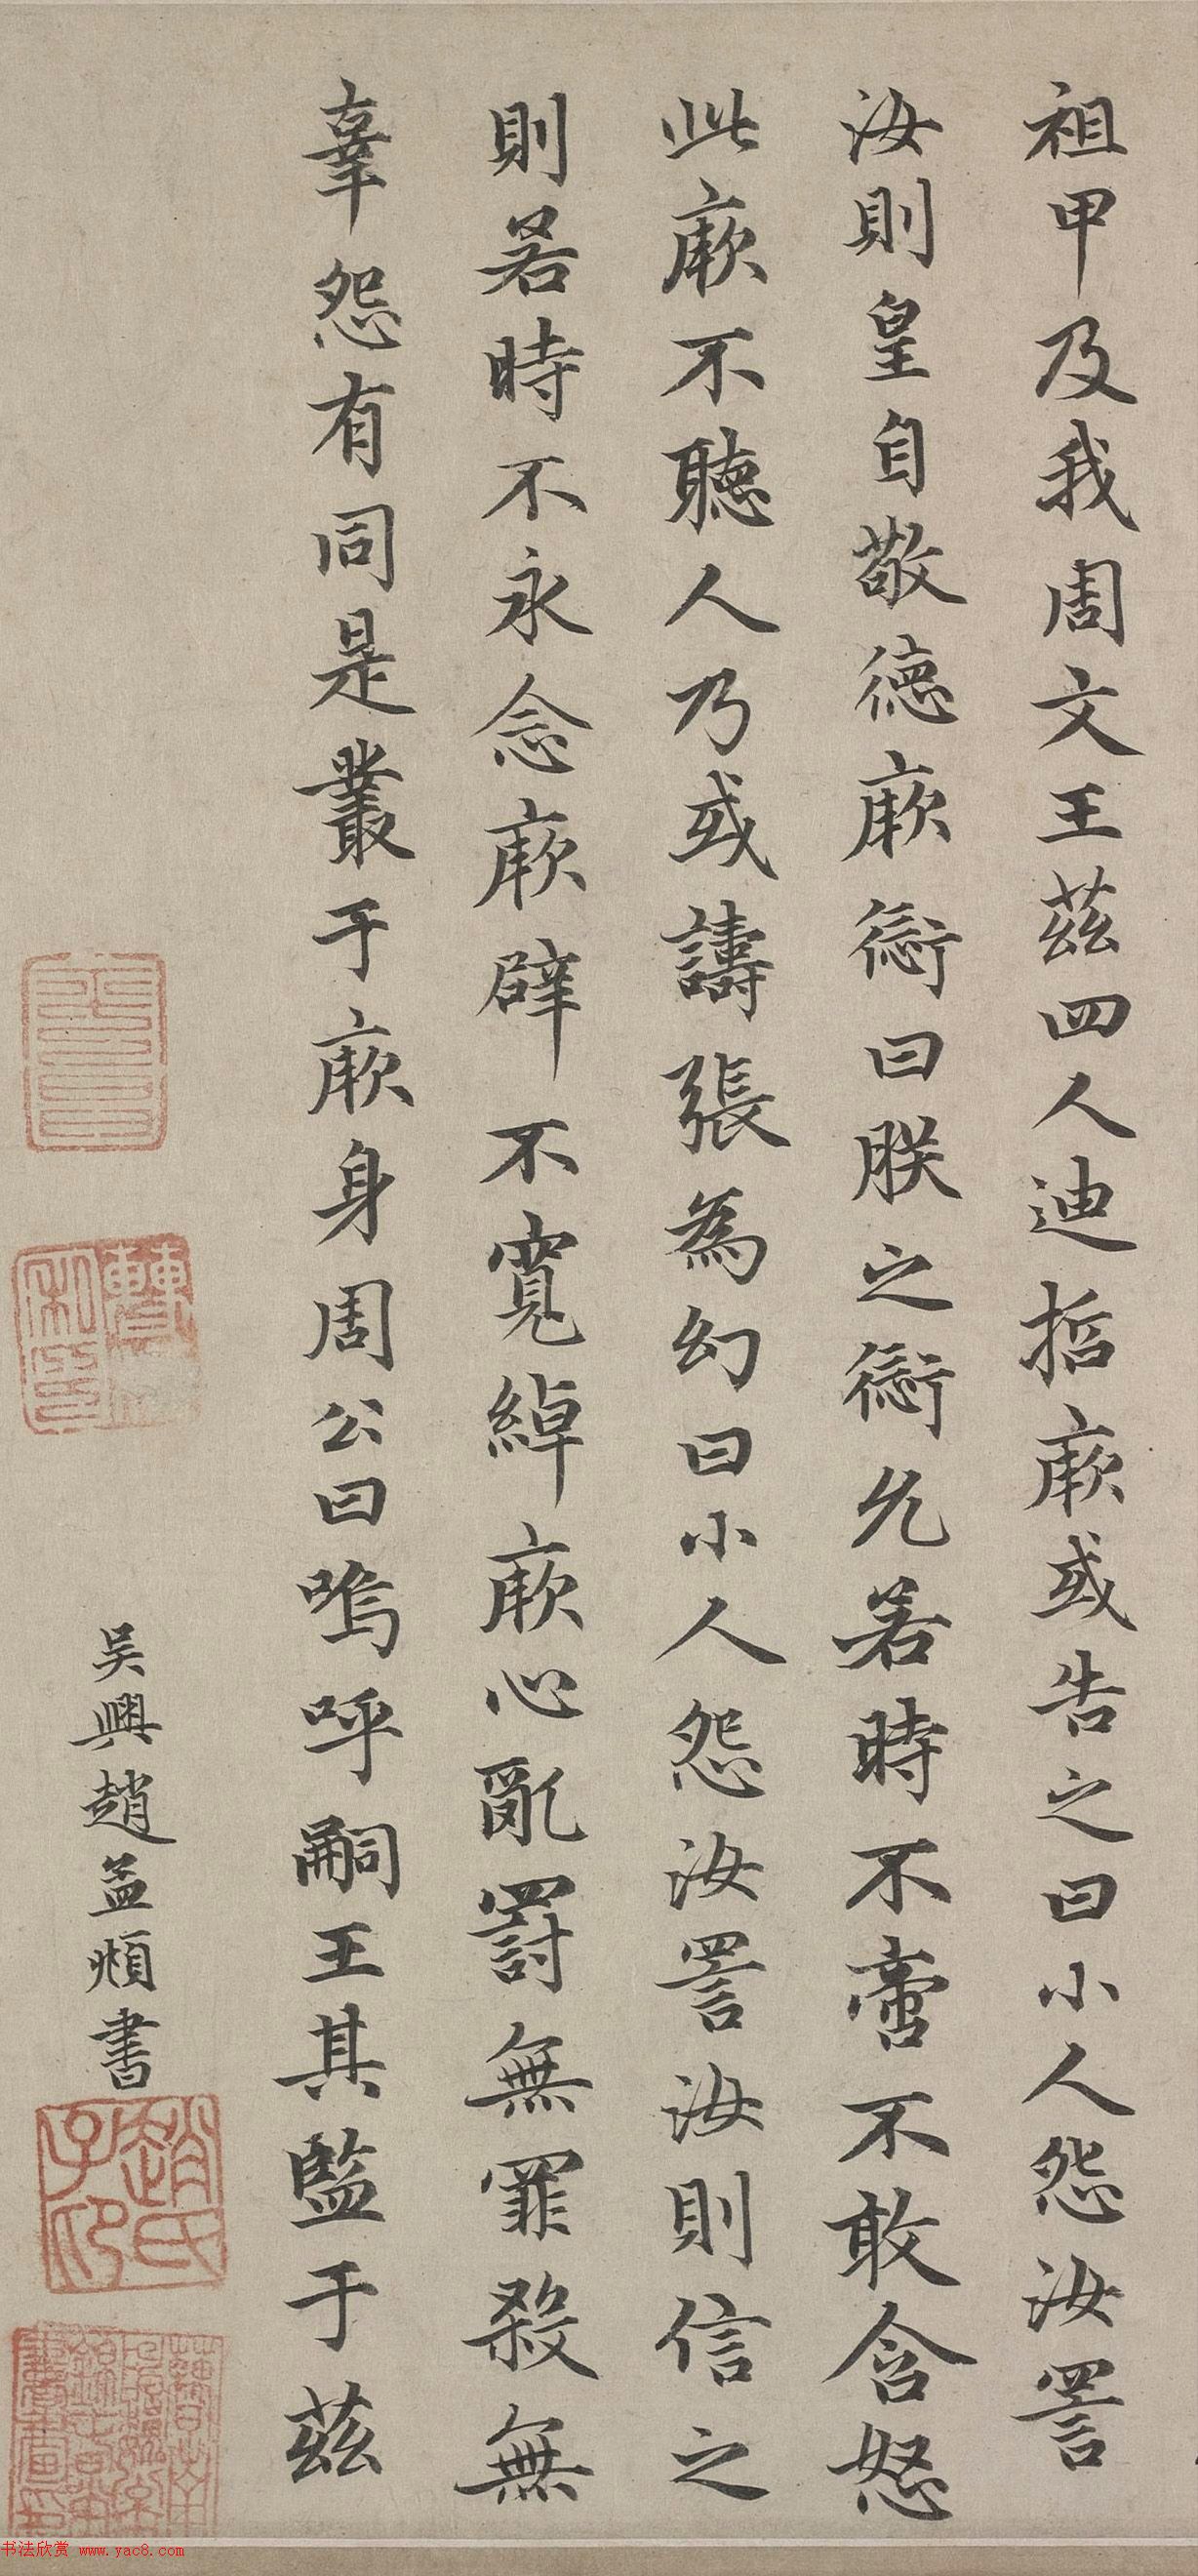 祖甲及我周文王茲四人迪哲厥或告之曰小人怨汝詈
汝則皇自敬德厥愆曰朕之愆允若時不啻不敢含怒
此厥不聽人乃或譸張為幻曰小人怨汝詈汝則信之
則若時不永念厥辟不寬綽厥心亂罰無罪殺無
辜怨有同是叢于厥身周公曰嗚呼嗣王其監于茲
吳興趙孟頫書
趙氏子昂
书法欣赏 www.yac8.com